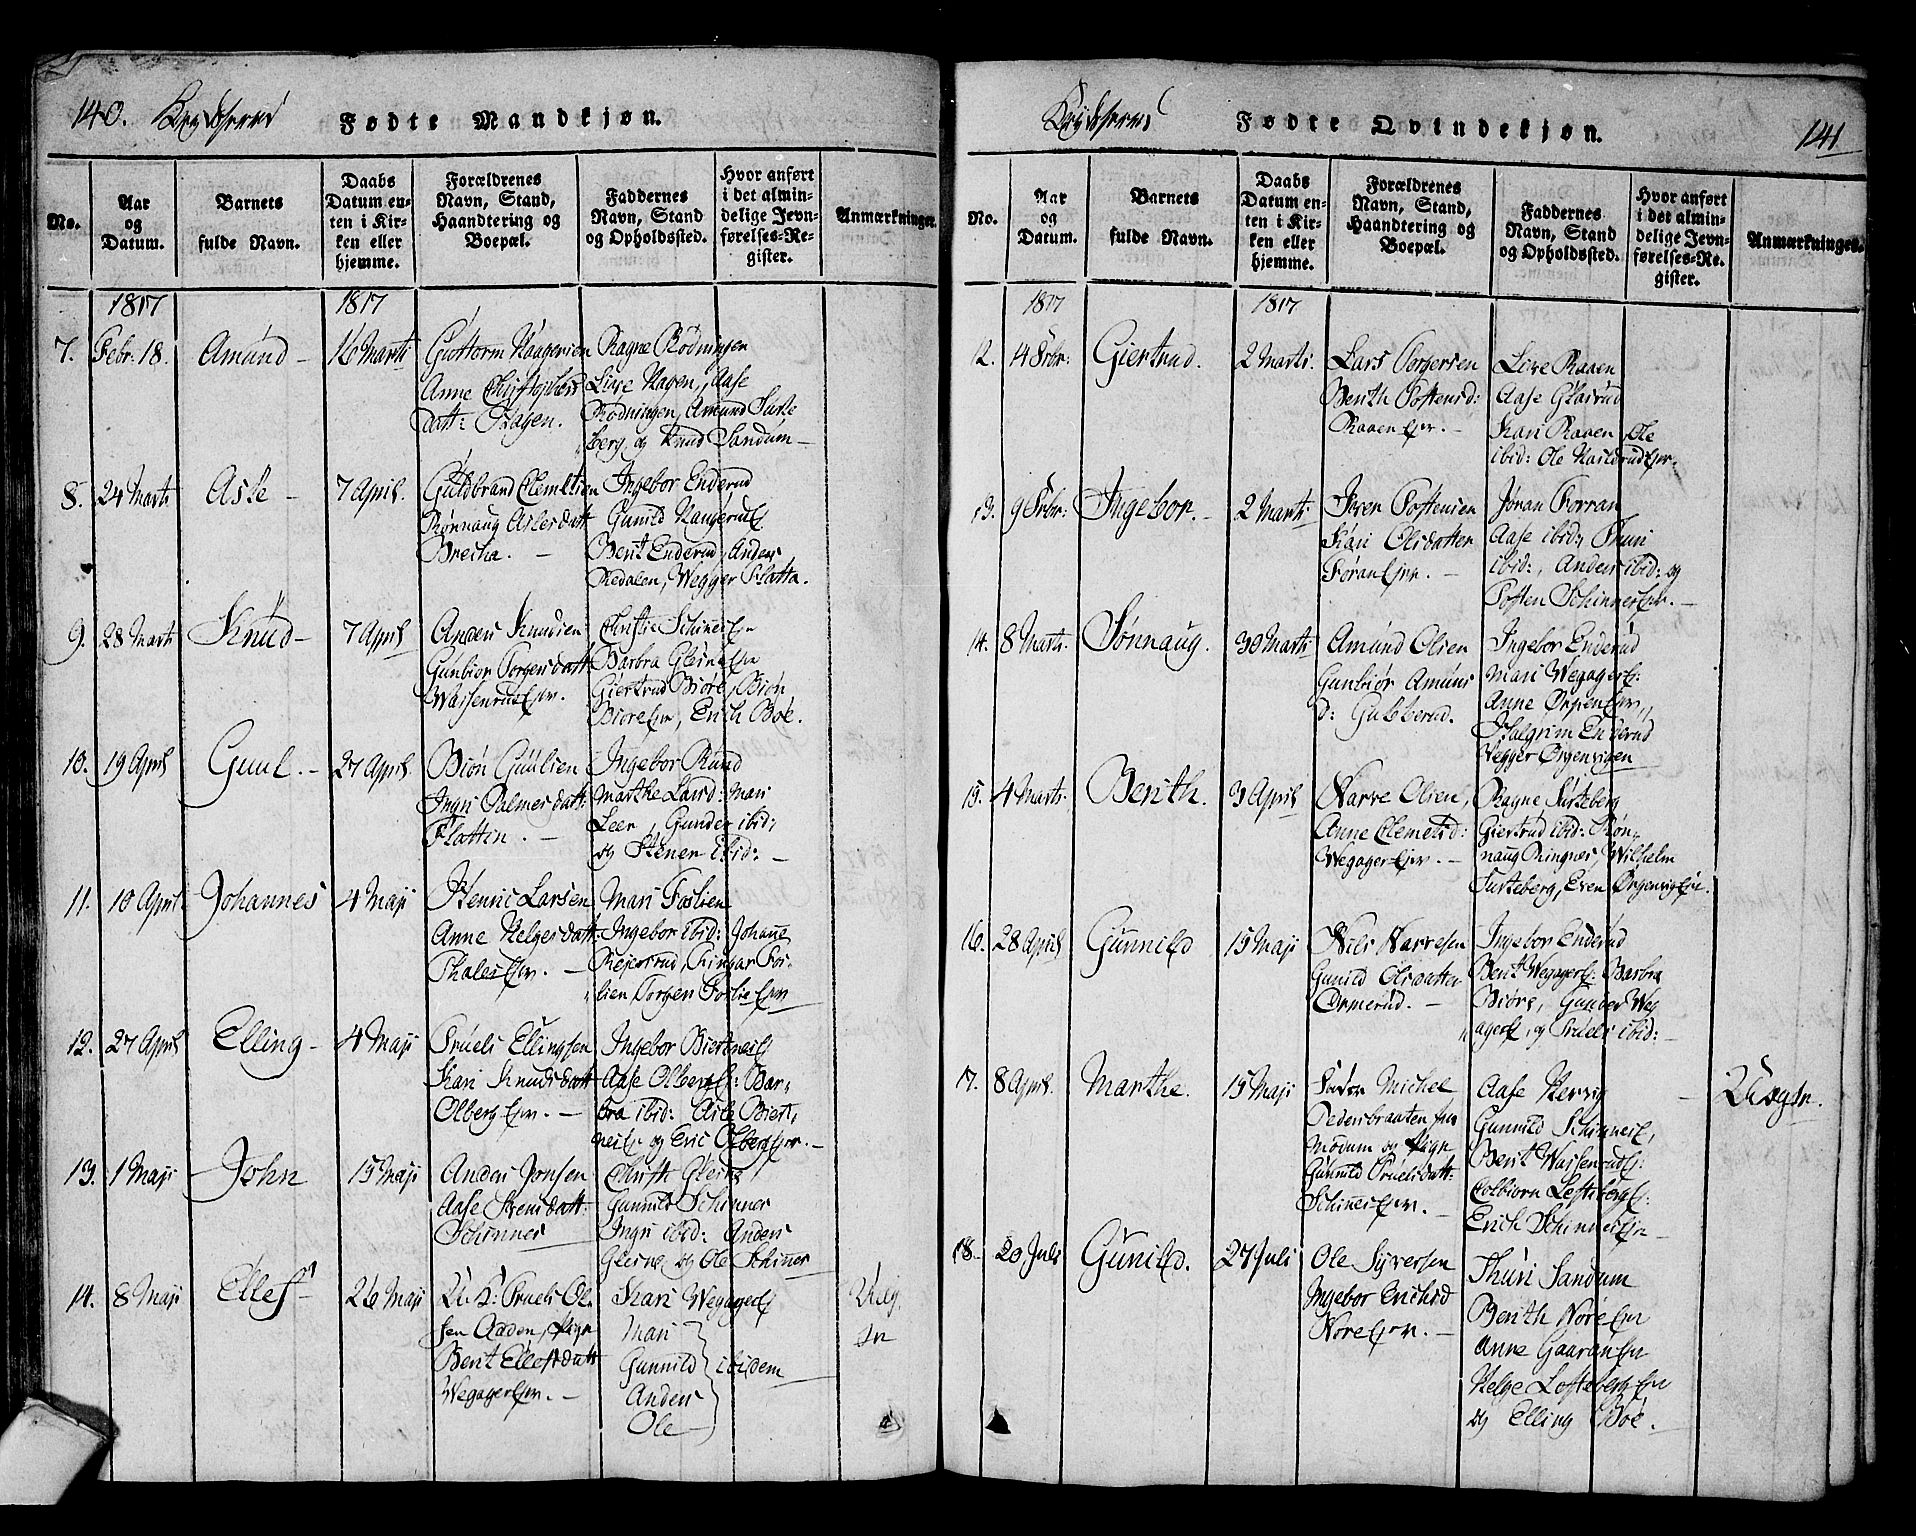 140. Krydsherred Fødte Mandkjøn.
No.
Aar og Datum.
Barnets fulde Navn.
Daabs Datum enten i Kirken eller hjemme.
Forældrenes Navn, Stand, Haandtering og Boepæl.
Faddernes Navn, Stand og Opholdssted.
Hvor anført i det almindelige Jevnførelses-Register.
Anmærkninger.
1817 1817
7. Febr: 18. Amund 16 Marti
Guttorm Haagensen
Anne Christophers
datt: Hagen.
Ragne Rodningen
Live Hagen, Aase
Rodningen, Amund Surte
berg og Knud Sandum
8. 24 Marti Asle 7 April.
Guldbrand Clemetsen
Rønnaug Aslesdatt
Brecka.
Ingebor Enderud
Gunild Haugerud
Berit Enderud, Anders
Redalen, Wegger Slatta.
9. 28 Marti Knud 7 April
Anders Knudsen
Gunbior Torgersdatt
Wassenrud
Christie Schinnes
Barbra Gleine
Giertrud Biøre, Biøn
Biøre, Erich Bøe.
10. 19 April Guul. 27 April
Biøn Guulsen
Ingri Palmersdatt:
Slattin.
Ingebor Rund
Marthe Land: Mari
Leer, Gunder ibid:
og Stener ibid:
11. 10 April Johannes 4 Maji
Henric Larsen
Anne Helgesdatt:
Thales
Mari Foslien
Ingebor ibid: Johane
Rejersrud, Ringar Fos-
lien, Torgen Foslie
12. 27 April Elling 4 Maji
Truels Ellingsen
Kari Knudsdatt
Olberg
Ingebor Biertnes
Aase Olberg: Bar-
bra ibid: Asle Biert,
nes og Eric Olberg
13. 1 Maji John 15 Maji
Anders Jonsen
Aase Svensdatt:
Schinnes
Christi Gleine
Gunnild Schinner
Ingri ibid: Anders
Gleine og Ole Schinner
14. 8 Maji Ellef 26 Maji
U.K: Truels Ol-
sen Aaden, Pige
Berit Ellefsdatt
Wegager
Kari Wegager
Mari
Gunnild ibidem
Anders
Ole
Uæg
te
Krydsherred Fødte Qvindekjøn. 141
No.
Aar og Datum.
Barnets fulde Navn.
Daabs Datum enten i Kirken eller hjemme.
Forældrenes Navn, Stand, Haandtering og Boepæl.
Faddernes Navn, Stand og Opholdssted.
Hvor anført i det almindelige Jevnførelses-Register.
Anmærkninger.
1817 1817
12. 4 Febr: Giertrud. 2 Marti.
Lars Torgersen
Berith Tostensd:
Raaen
Live Raaen
Aase Glasrud
Kari Raaen, Ole
ibid: Ole Haslerud
13. 9 Febr: Ingebor. 2 Marti
Iver Tostensen
Kari Olsdatter
Foran
Jøran Forran
Aase ibid, Thuri
ibid:, Anders ibid: og
Tosten Schinner
14. 8 Marti. Sønnaug. 30 Marti
Amund Olsen
Gunbiør Amuns
d: Gubberud.
Ingebor Enderud
Mari Wegager:
Anne Ørpen,
Halgrim Enderud
Vegger Ørgenvigen
15. 4 Marti. Berith. 3 April
Narve Olsen,
Anne Clemetsd:
Wegager
Ragne Surteberg
Giertrud ibid: Røn-
naug Ringnes Wilhelm
Surteberg, Even Ørgenvig
16. 28 April Gunnild 15 Maji
Niels Narvesen
Gunild Olsdatter
Ormerud.
Ingebor Enderud
Berit Wegager: Barbra
Biøre, Gunder Weg
ager, og Truels ibid:
17. 8 April. Marthe. 15 Maji
Michel
Dedersbraaten
Modum og Pige
Gunnild Truelsdatt:
Schinnes
Aase Hervig
Gunnild Schinnes,
Berit Wassenrud:
Colbiorn Lefteberg:
Erich Schinnes
Uægte.
18. 20 Juli Gunild. 27 Juli
Ole Syversen
Ingebor Erichsd
Nore
Thuri Sandum
Berith Nore
Anne Gaaran
Helge Lofteberg
og Elling Bøe.